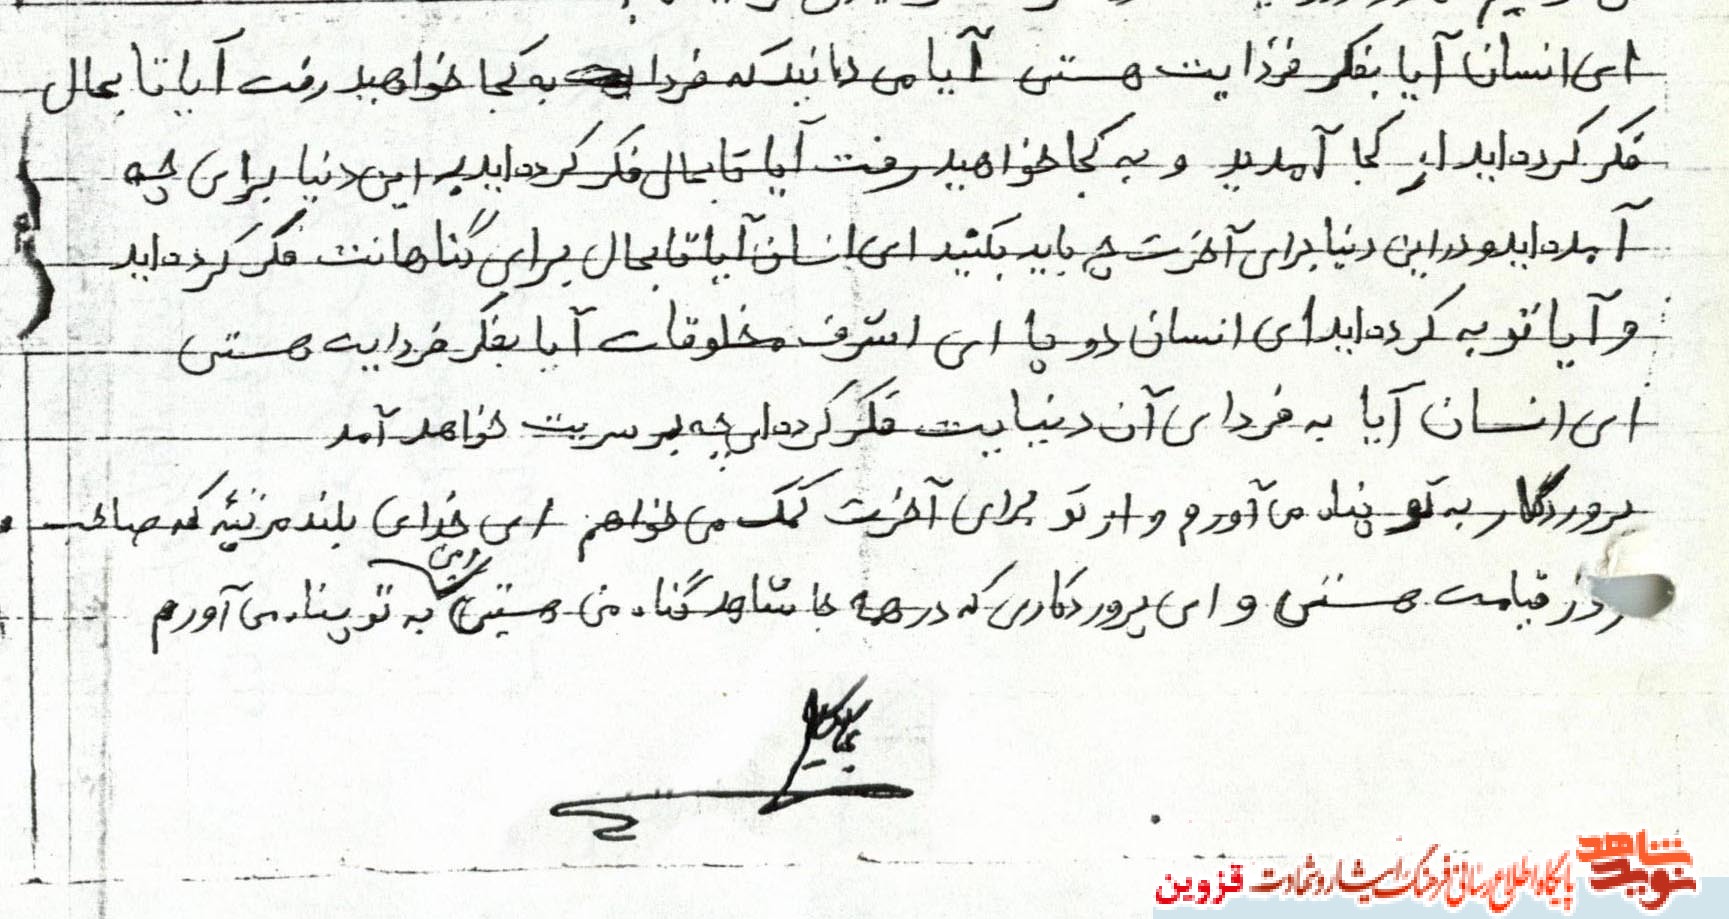 ای انسان آیا بفکر فردایت هستی آیا می دانید که فردا به کجا خواهید رفت آیا تا بحال
فکر کرده اید از کجا آمدید و به کجا خواهید رفت آیا تا بحال فکر کرده اید به این دنیا برای چه
آمده اید و در این دنیا برای آخرت چه باید بکنید ای انسان آیا تا بحال برای گناهانت فکر کرده اید
و آیا توبه کرده اید ای انسان دو پا ای اشرف مخلوقات آیا بفکر فردایت هستی
ای انسان آیا به فردای آن دنیایت فکر کرده ای چه بر سریت خواهد آمد
پروردگار به تو پناه می آورم و از تو برای آخرت کمک می خواهم ای خدای بلند مرتبه که صاحب
روز قیامت هستی و ای پروردگاری که در همه جا شاهد گناه من هستی به تو پناه می آورم
نوید شاهد
پایگاه اطلاع رسانی فرهنگ ایثار و شهادت قزوین